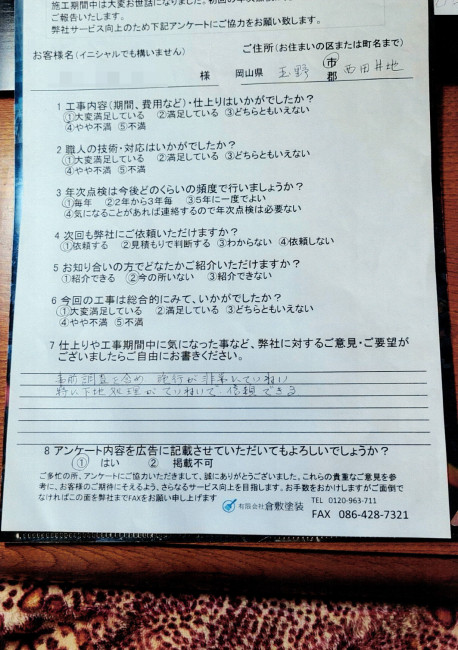 施工期間中は大変お世話になりました。初回の年次点検
ご報告いたします。
弊社サービス向上のため下記アンケートにご協力をお願い致します。
お客様名(イニシャルでも構いません)
ご住所(お住まいの区または町名まで)
様
岡山県 玉野 市 郡 西田井地
1 工事内容(期間、費用など)・仕上りはいかがでしたか?
①大変満足している ②満足している ③どちらともいえない
④やや不満 ⑤不満
2 職人の技術・対応はいかがでしたか?
①大変満足している ②満足している ③どちらともいえない
④やや不満 ⑤不満
3 年次点検は今後どのくらいの頻度で行いましょうか?
①毎年 ②2年から3年毎 ③5年に一度でよい
④気になることがあれば連絡するので年次点検は必要ない
4 次回も弊社にご依頼いただけますか?
①依頼する ②見積もりで判断する ③わからない ④依頼しない
5 お知り合いの方でどなたかご紹介いただけますか?
①紹介できる ②今の所いない ③紹介できない
6 今回の工事は総合的にみて、いかがでしたか?
①大変満足している ②満足している ③どちらともいえない
④やや不満 ⑤不満
7 仕上りや工事期間中に気になった事など、弊社に対するご意見・ご要望が
ございましたらご自由にお書きください。
事前調査を含め 施行が非常にていねい
特に下地処理がていねいで信頼できる
8 アンケート内容を広告に記載させていただいてもよろしいでしょうか?
① はい ② 掲載不可
ご多忙の所、アンケートにご協力いただきまして、誠にありがとうございました。これらの貴重なご意見を参
考に、お客様のご期待にそえるよう、さらなるサービス向上を目指します。お手数をおかけしますがご面倒で
なければこの面を弊社までFAXをお願い申し上げます
有限会社倉敷塗装
TEL 0120-963-711
FAX 086-428-7321